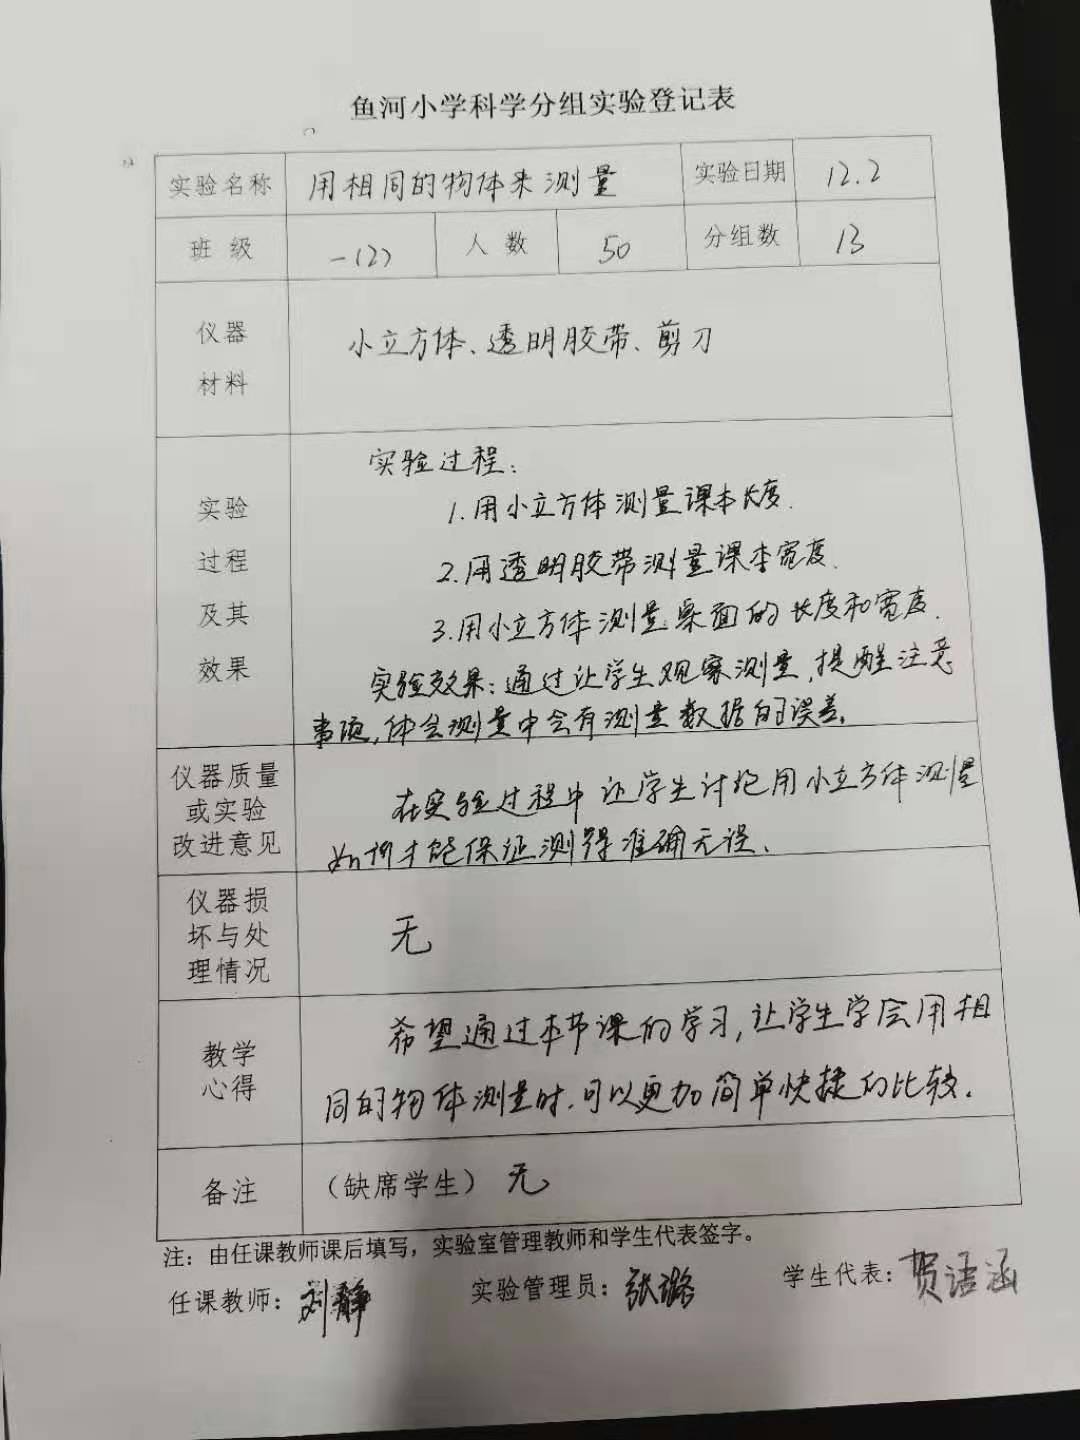 鱼河小学科学分组实验登记表
实验名称 用相同的物体来测量 实验日期 12.2
班 级 一(2) 人 数 50 分组数 13
仪器
材料
小立方体、透明胶带、剪刀
实验
过程
及其
效果
实验过程:
1.用小立方体测量课本长度.
2.用透明胶带测量课本宽度.
3.用小立方体测量桌面的长度和宽度.
实验效果:通过让学生观察测量,提醒注意
事项,体会测量中会有测量数据的误差.
仪器质量
或实验
改进意见
在实验过程中让学生讨论用小立方体测量
如何才能保证测得准确无误.
仪器损
坏与处
理情况
无
教学
心得
希望通过本节课的学习,让学生学会用相
同的物体测量时,可以更加简单快捷的比较.
备注 (缺席学生) 无
注:由任课教师课后填写,实验室管理教师和学生代表签字。
任课教师:刘静 实验管理员:张璐 学生代表:贺语涵